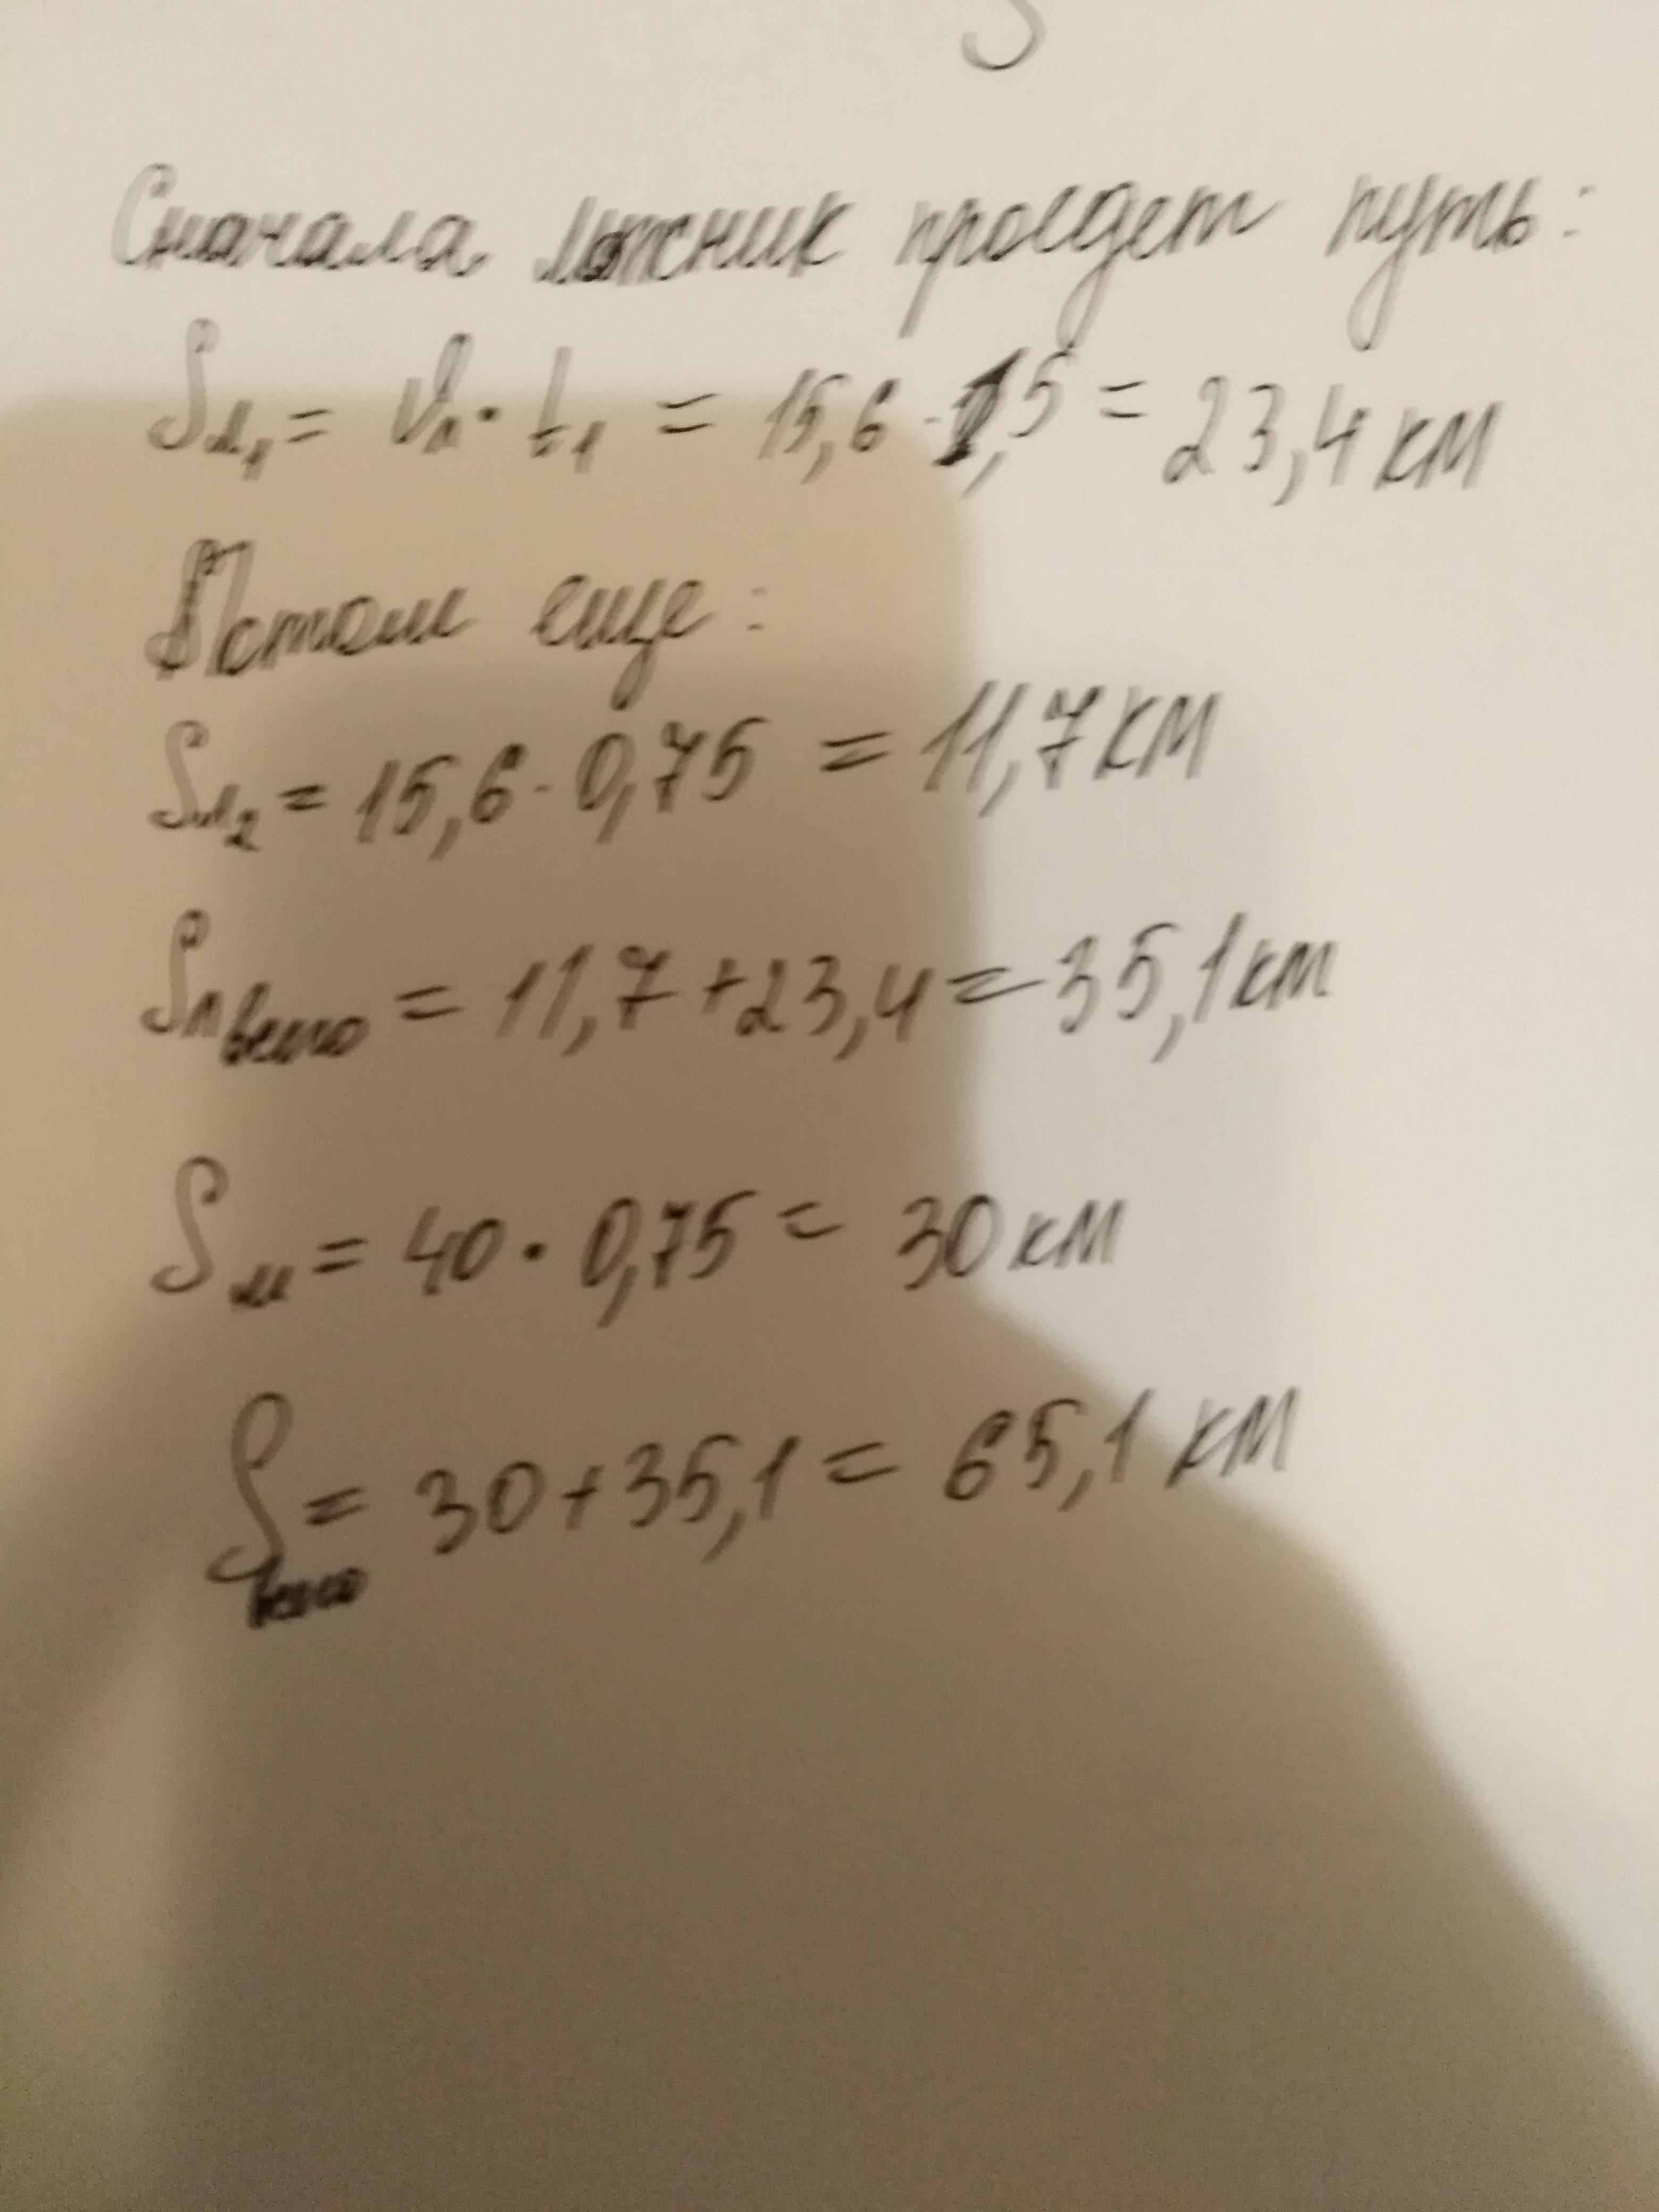 S
Сначала лыжник проедет путь:
Sл₁ = Vл · t₁ = 15,6 · 1,5 = 23,4 км
Потом еще:
Sл₂ = 15,6 · 0,75 = 11,7 км
Sл всего = 11,7 + 23,4 = 35,1 км
Sм = 40 · 0,75 = 30 км
S всего = 30 + 35,1 = 65,1 км